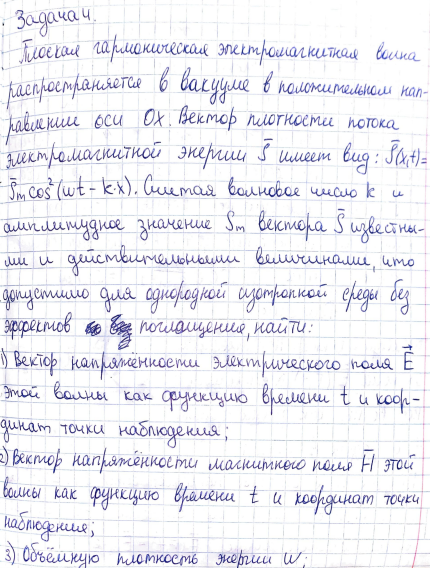 Задача 4.
Плоская гармоническая электромагнитная волна
распространяется в вакууме в положительном нап-
равлении оси OX. Вектор плотности потока
электромагнитной энергии S̄ имеет вид: S̄(x,t)=
S̄m cos²(wt - k·x). Считая волновое число k и
амплитудное значение Sm вектора S̄ известны-
ми и действительными величинами, что
допустимо для однородной изотропной среды без
эффектов поглощения, найти:
1) Вектор напряжённости электрического поля E⃗
этой волны как функцию времени t и коор-
динат точки наблюдения;
2) Вектор напряжённости магнитного поля H̄ этой
волны как функцию времени t и координат точки
наблюдения;
3) Объёмную плотность энергии w;